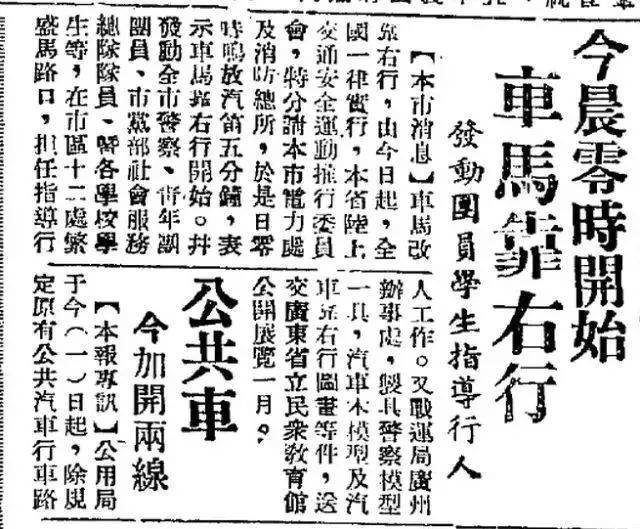 今晨零時開始
車馬靠右行
發動團員學生指導行人
【本市消息】車馬改
靠右行，由今日起，全
國一律實行，本省陸上
交通安全運動推行委員
會，特分請本市電力處
及消防總所，於是日零
時鳴放汽笛五分鐘，表
示車馬靠右行開始。并
發動全市警察、青年團
團員、市黨部社會服務
總隊隊員、曁各學校學
生等，在市區十二處繁
盛馬路口，担任指導行
人工作。又戰運局廣州
辦事處，製具警察模型
一具，汽車木模型及汽
車靠右行圖畫等件，送
交廣東省立民衆敎育館
公開展覽一月。
公共車
今加開兩線
【本報專訊】公用局
于今（一）日起，除規
定原有公共汽車行車路